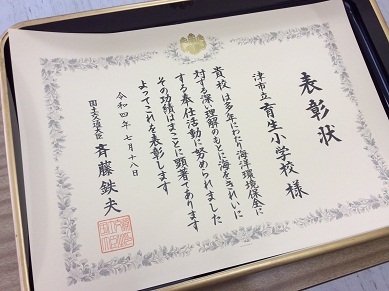 表彰状
津市立育生小学校様
貴校は多年にわたり海洋環境保全に
対する深い理解のもとに海をきれいに
する奉仕活動に努められました
その功績はまことに顕著であります
よってこれを表彰します
令和四年七月十八日
国土交通大臣 斉藤鉄夫